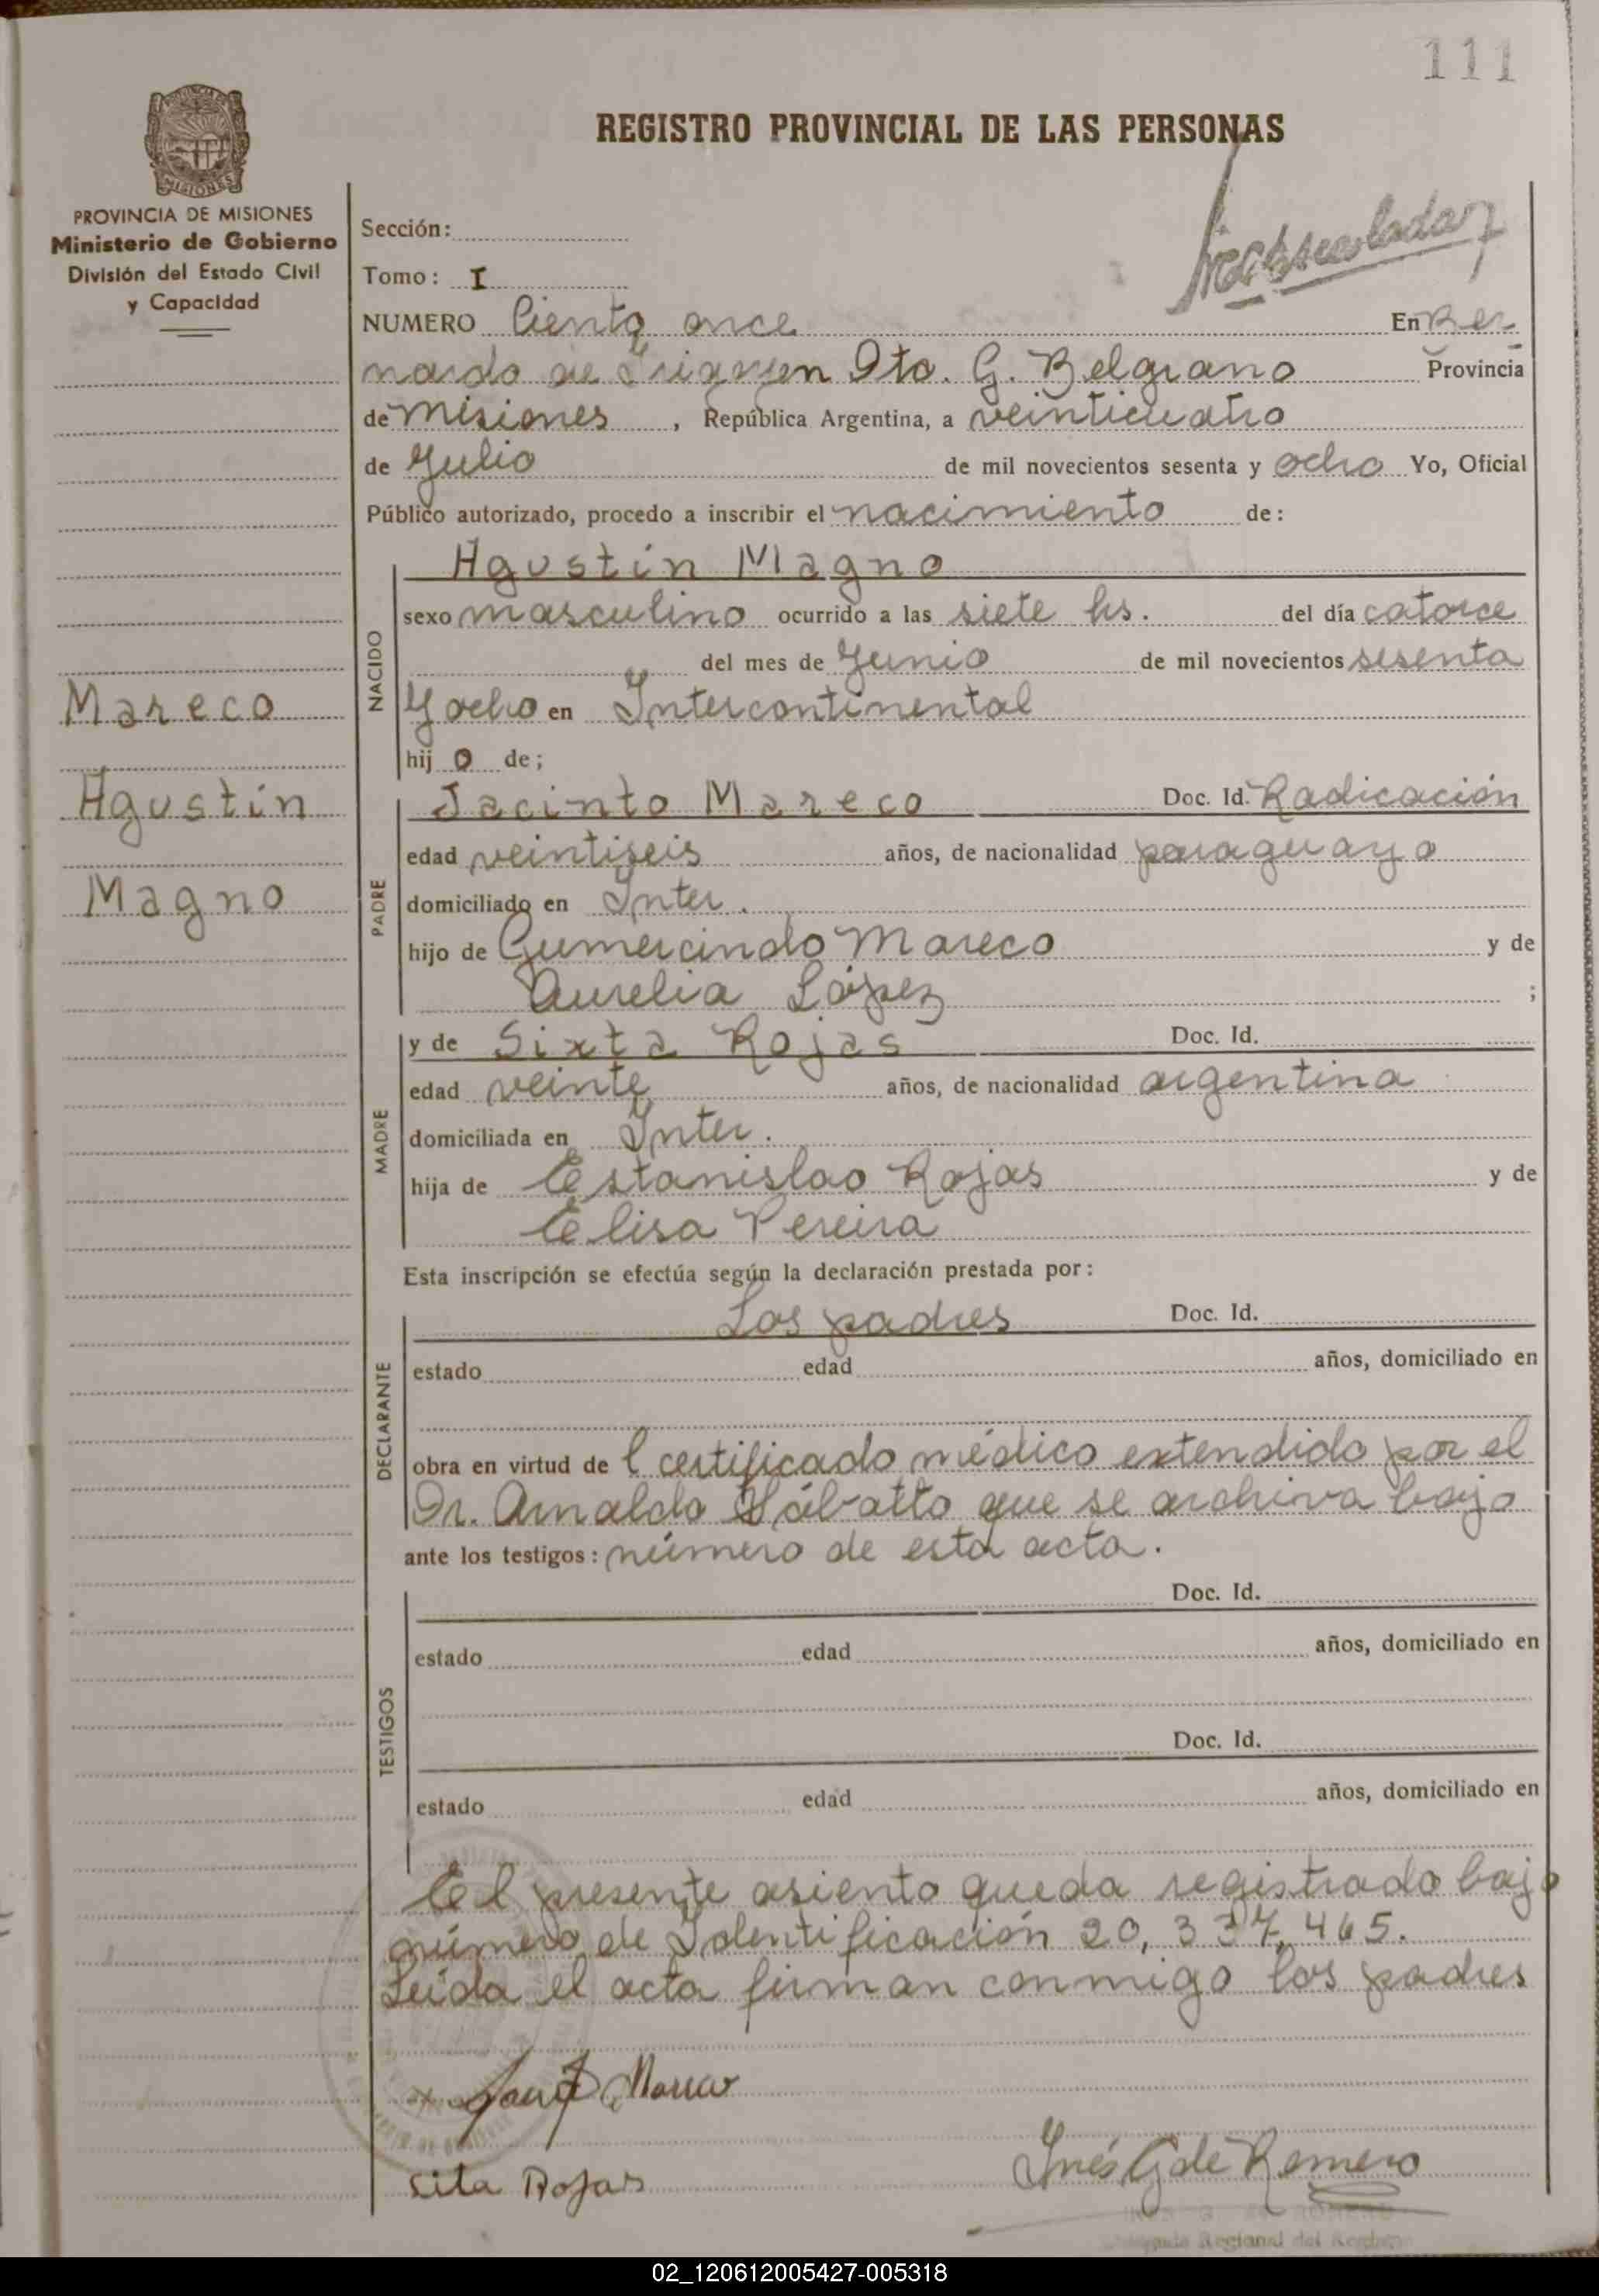 111
REGISTRO PROVINCIAL DE LAS PERSONAS
MISIONES
PROVINCIA DE MISIONES
Ministerio de Gobierno
División del Estado Civil
y Capacidad
Mareco
Agustín
Magno
Sección:
Tomo: I
NUMERO Ciento once En Ber-
nardo de Irigoyen Dto. G. Belgrano Provincia
de Misiones, República Argentina, a veinticuatro
de Julio de mil novecientos sesenta y ocho Yo, Oficial
Público autorizado, procedo a inscribir el nacimiento de:
NACIDO
Agustín Magno
sexo masculino ocurrido a las siete hs. del día catorce
del mes de Junio de mil novecientos sesenta
y ocho en Intercontinental
hij o de;
PADRE
Jacinto Mareco Doc. Id. Radicación
edad veintiseis años, de nacionalidad paraguayo
domiciliado en Inter.
hijo de Gumercindo Mareco y de
Aurelia López ;
MADRE
y de Sixta Rojas Doc. Id.
edad veinte años, de nacionalidad argentina
domiciliada en Inter.
hija de Estanislao Rojas y de
Elisa Pereira
Esta inscripción se efectúa según la declaración prestada por:
DECLARANTE
Los padres Doc. Id.
estado edad años, domiciliado en
obra en virtud de l certificado médico extendido por el
Dr. Arnaldo Sábatto que se archiva bajo
ante los testigos: número de esta acta.
TESTIGOS
Doc. Id.
estado edad años, domiciliado en
Doc. Id.
estado edad años, domiciliado en
El presente asiento queda registrado bajo
número de Identificación 20,337,465.
Leída el acta firman conmigo los padres
Sita Rojas
Inés G de Romero
Regional del
02_120612005427-005318